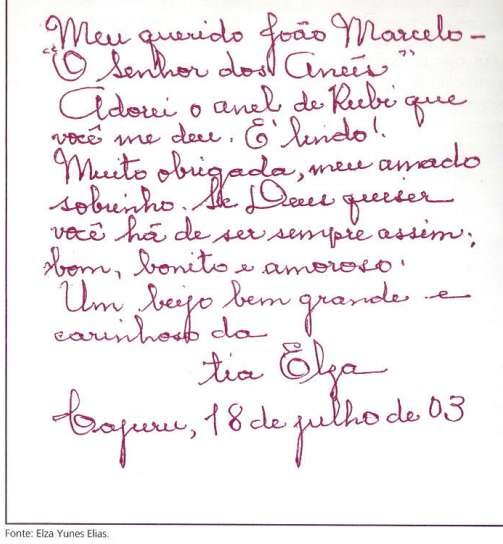 Meu querido João Marcelo -
"O Senhor dos Anéis"
Adorei o anel de Rubi que
você me deu. É lindo!
Muito obrigada, meu amado
sobrinho. Se Deus quiser
você há de ser sempre assim:
bom, bonito e amoroso.
Um beijo bem grande e
carinhoso da
tia Elza
Cajuru, 18 de julho de 03
Fonte: Elza Yunes Elias.